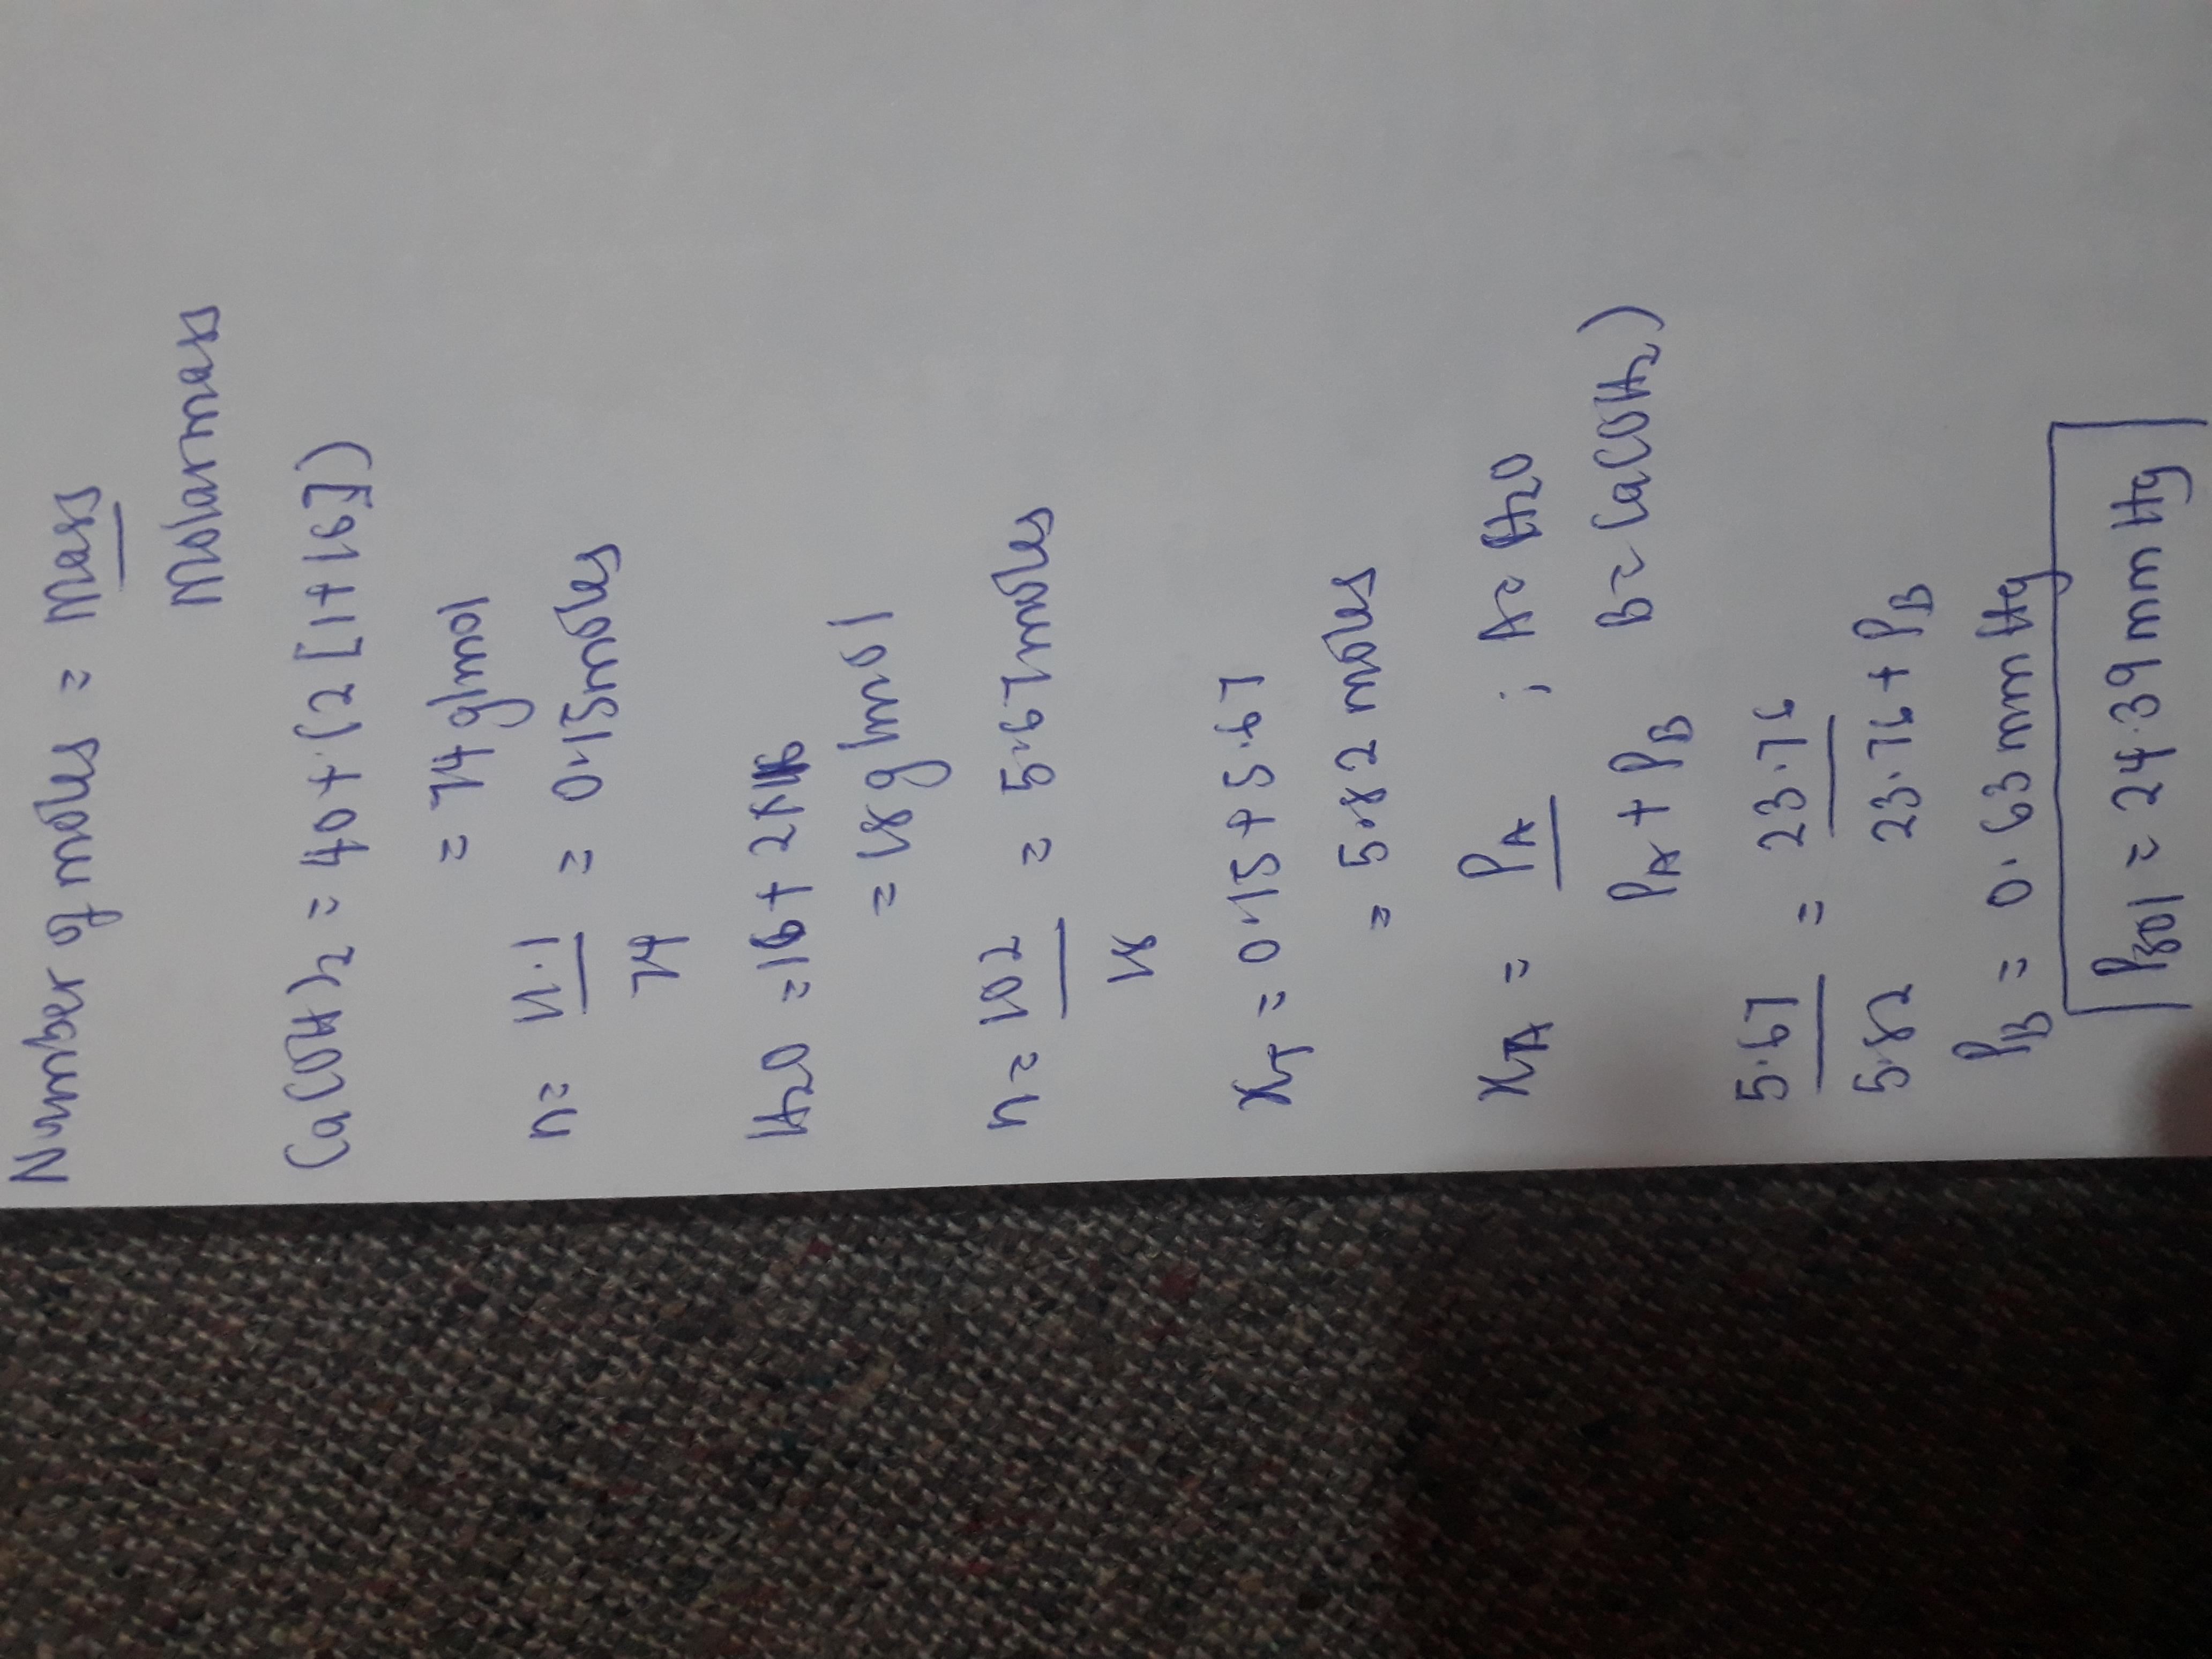 Number of moles = Mass
Molarmass
Ca(OH)2 = 40 + (2[1+16])
= 74 g/mol
n = 11.1 = 0.15moles
74
H2O = 16 + 2x1
= 18 g/mol
n = 102 = 5.67moles
18
xT = 0.15 + 5.67
= 5.82 moles
xA = PA ; A = H2O
PA + PB B = Ca(OH2)
5.67 = 23.76
5.82 23.76 + PB
PB = 0.63 mm Hg
Psol = 24.39 mm Hg